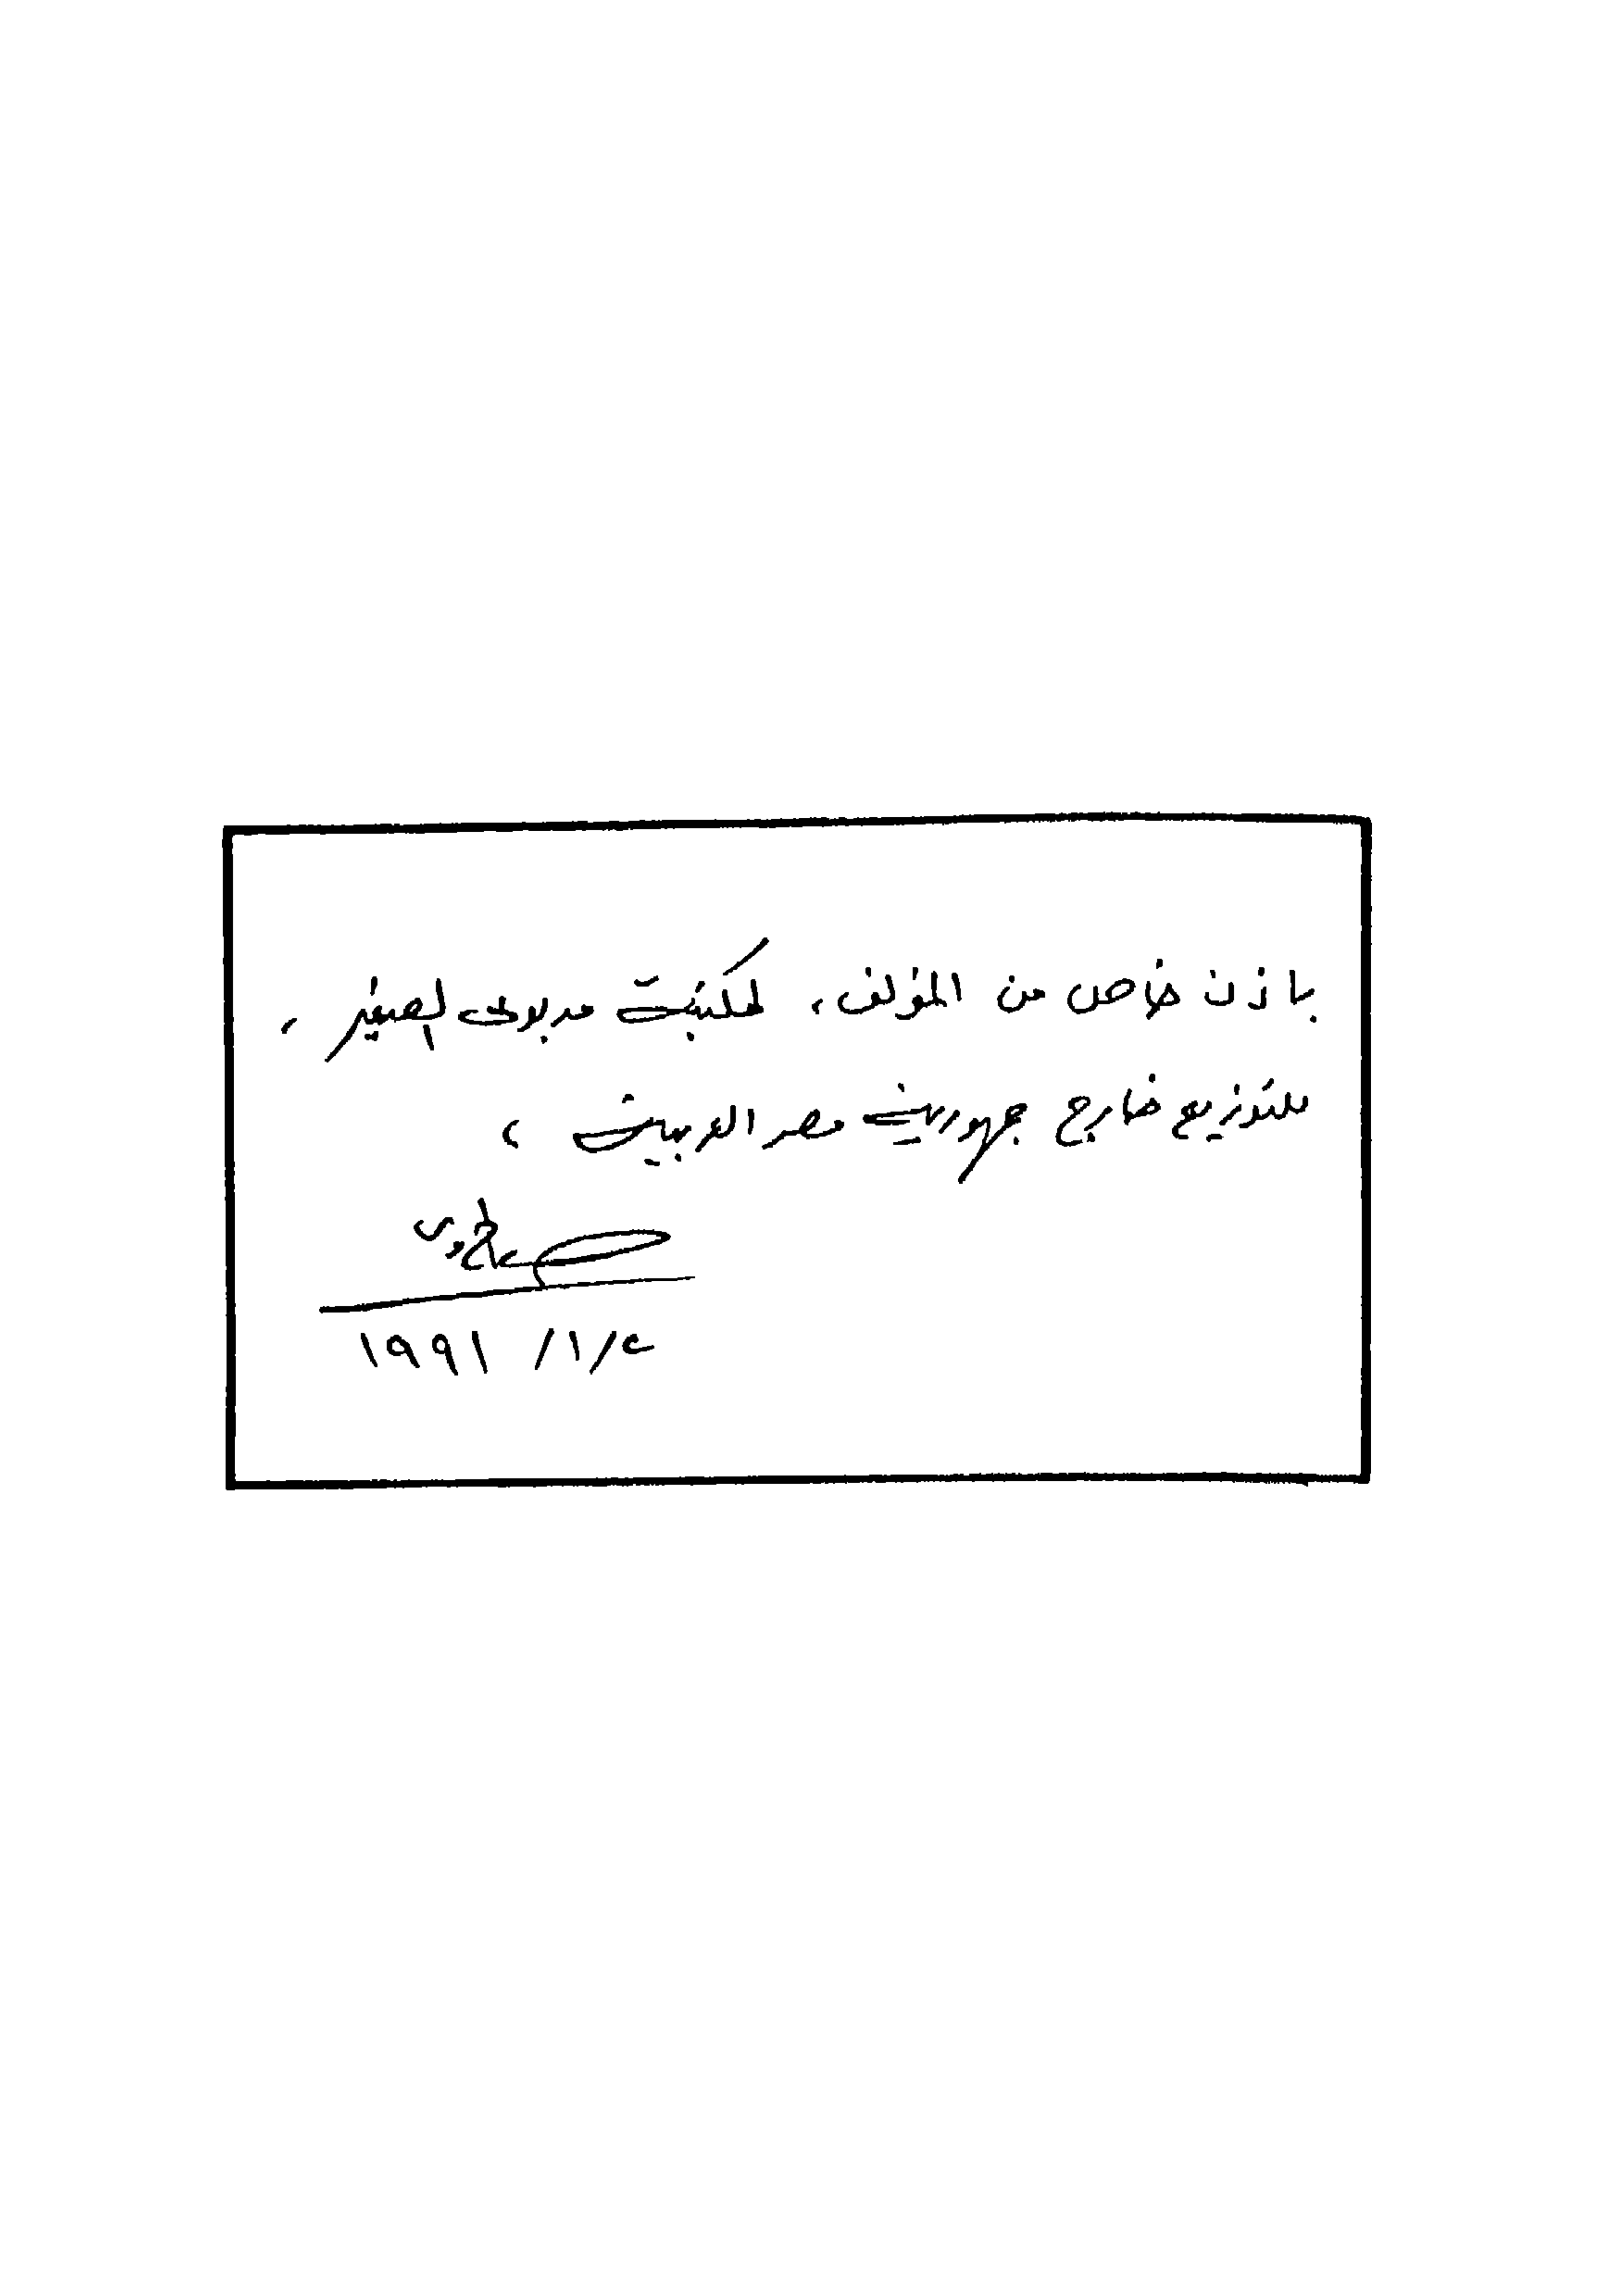 باذن خاص من المؤلف، لمكتبة مدبولى الصغير،
للتوزيع خارج جمهورية مصر العربية،
١٩٩١/١/٤